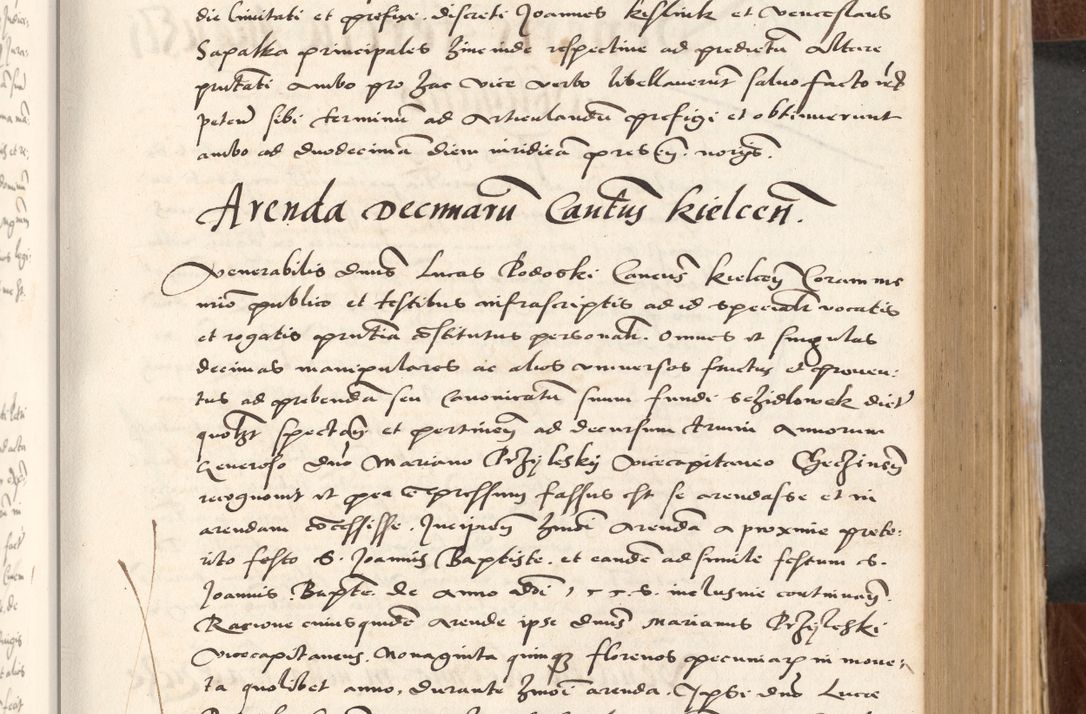 die Civitati et prefixi. discreti Joannes Keslink et Venceslaus
Sapalka principales hincinde respective ad predictū Altere
prntati ambo pro hac vice verbo libellaverūt salvo facto
peteñ sibi terminū ad Articulandū prefigi et obtinuerunt
ambo ad duodecimā diem iuridicā
Arenda Decimarū Cantus Kielceñ.
Venerabilis dnus Lucas Podoski Cancus Kielceñ Coram me
nrio publico et testibus infrascriptis ad id specialr vocatis
et rogatis prntia cōstitutus personalr. Omnes et singulas
decimas manipulares ac alios universos fructus et proven:
tus ad prebendā seu Canonicatū suum fundi Sczidlowek dict
spectań et pertineñ ad decursum trium Annorum
Generoso dno Mariano Przyleskij Vicecapitaneo Checzinesñ
recognovit et per expressum fassus est se arendasse et in
arendam cōcessisse. Incipień hmōi Arendā a proxime prete:
rito festo S. Joannis Baptiste. et eandē ad simile festum S.
Joannis Bapte. de Anno dni 1558. inclusive continuań.
Racione cuiusquidē Arende ipse dnus Marianus Przyleski
Vicecapitaneus. Nonaginta quinqz florenos pecuniarp in mone:
ta quolibet anno, durante hmōi arenda. Ipsi dno Luce